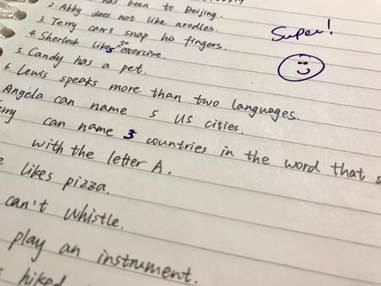 has been to Beijing.
2. Abby does not like needles.
3. Terry can't snap his fingers.
4. Sherlock likes to exercise.
5. Candy has a pet.
6. Lewis speaks more than two languages.
Angela can name 5 US cities.
can name 3 countries in the word that
with the letter A.
likes pizza.
can't whistle.
play an instrument.
hiked
Super!